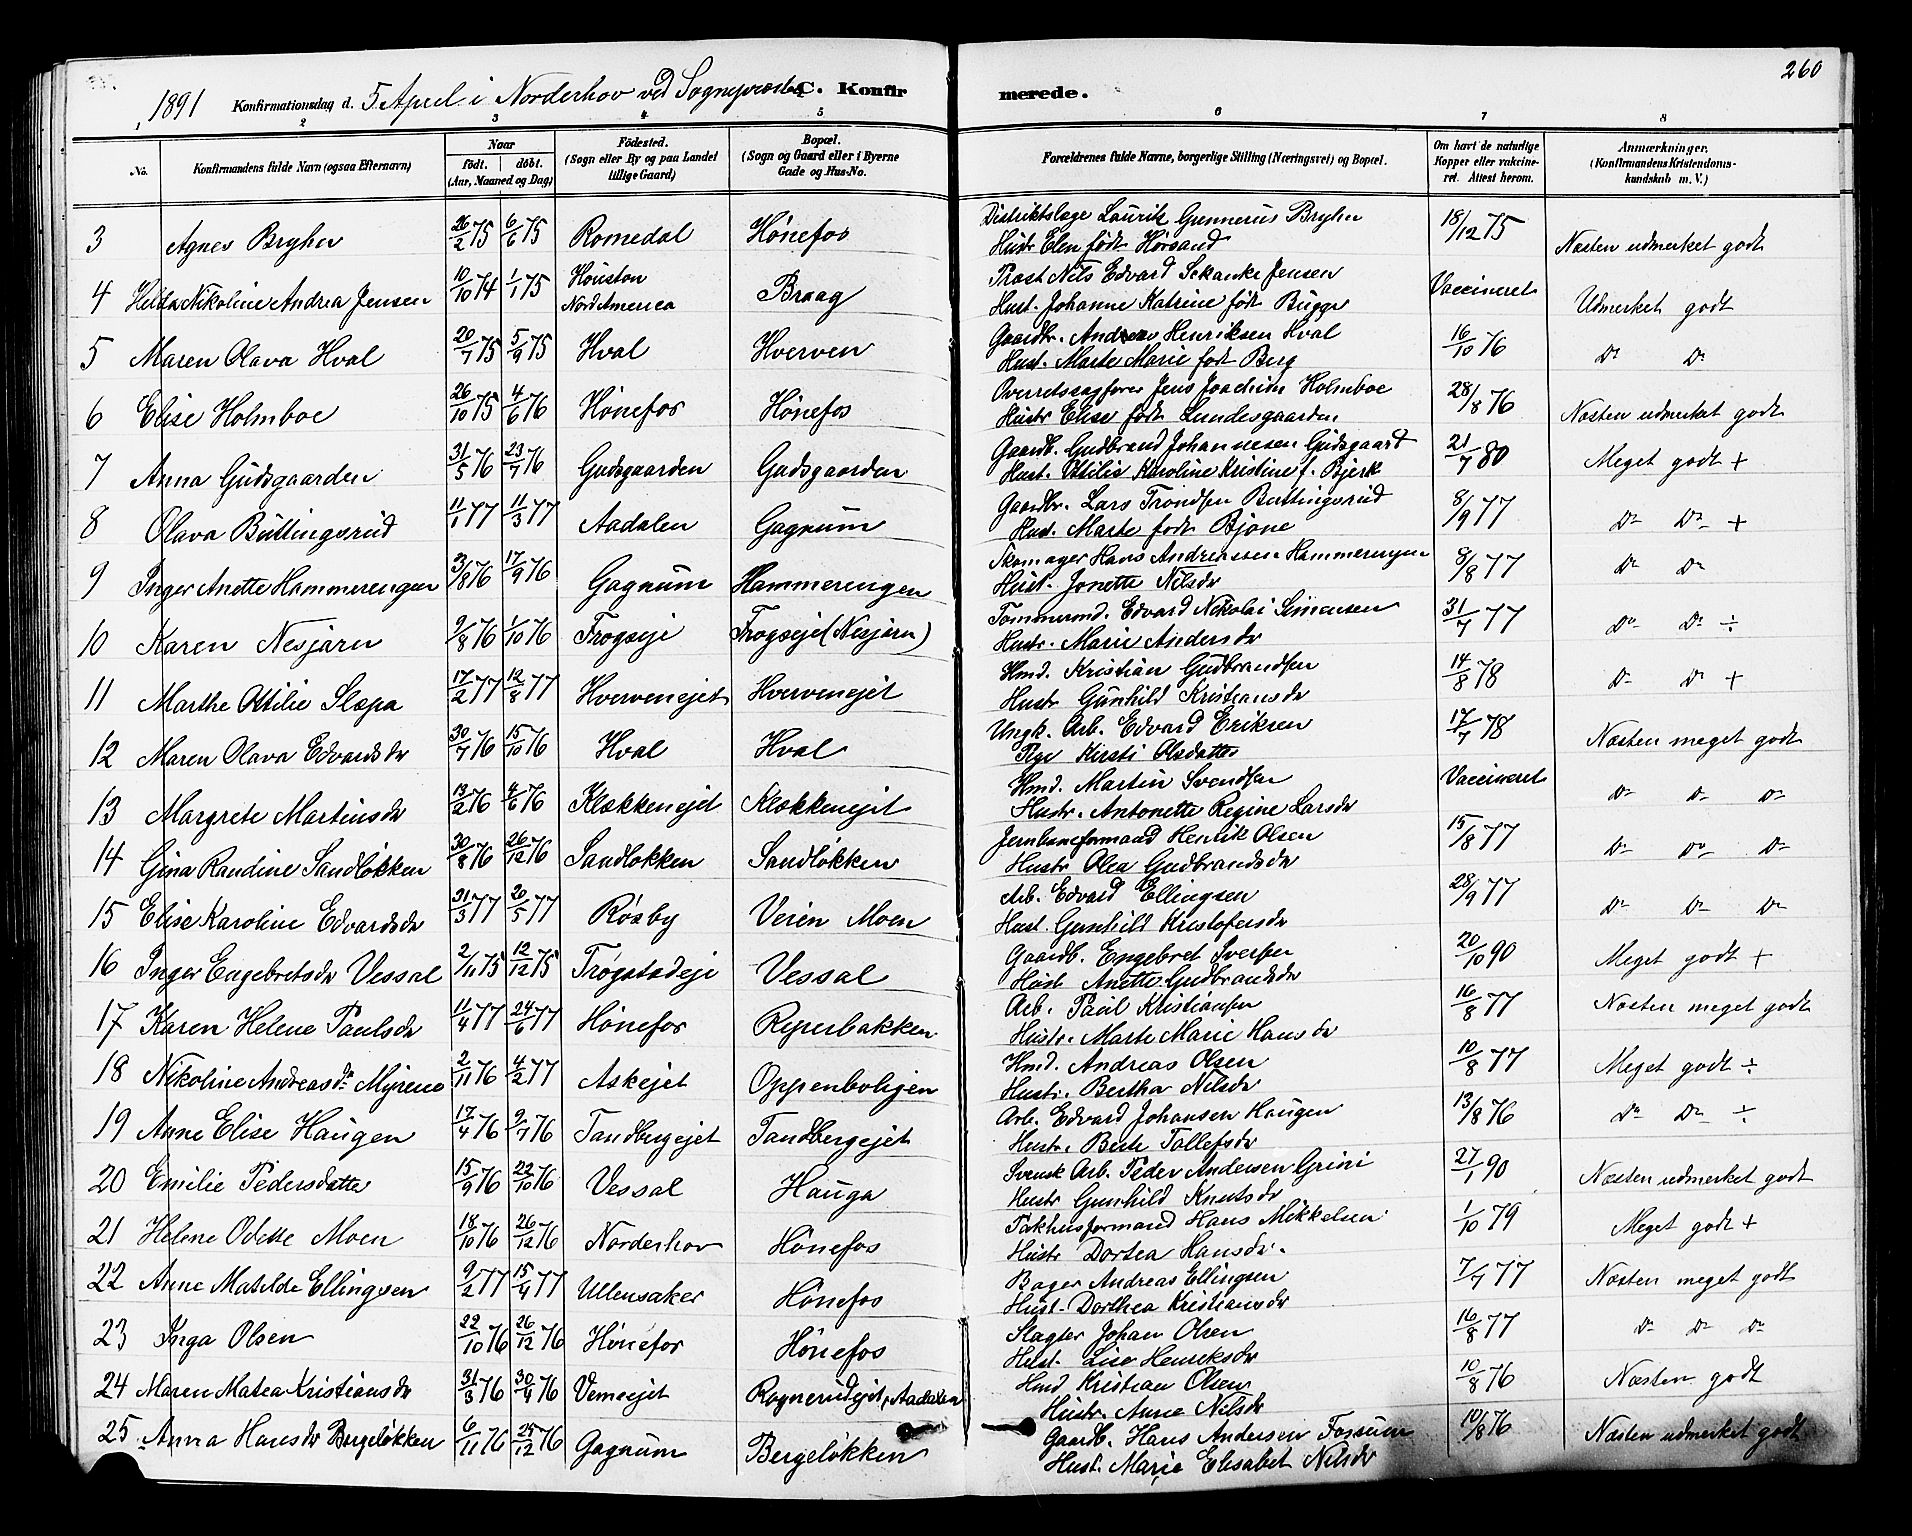 260
1891 Konfirmationsdag d. 5 April i Norderhov ved Sognepræsten C. Konfirmerede.
1 2 3 4 5 6 7 8
No. Konfirmandens fulde Navn (ogsaa Efternavn) Naar født. døbt. (Aar, Maaned og Dag) Fødested. (Sogn eller By og paa Landet tillige Gaard) Bopæl. (Sogn og Gaard eller i Byerne Gade og Hus-No. Forældrenes fulde Navne, borgerlige Stilling (Næringsvei) og Bopæl. Om havt de naturlige Kopper eller vaccineret. Attest herom. Anmærkninger. (Konfirmandens Kristendomskundskab m. V.)
3 Agnes Bryhn 26/2 75 6/6 75 Romedal Hønefos Distriktslæge Lauritz Gunnerus Bryhn 18/12 75 Næsten udmerket godt
Hustr Elen født Hørsand
4 Hilda Nikoline Andrea Jensen 10/10 74 1/1 75 Houston Nord America Braag Prost Nils Edvard Sekanke Jensen Vaccineret Udmerket godt
Hust. Johanne Katrine født Bugge
5 Maren Olava Hval 20/7 75 5/9 75 Hval Hverven Gaardbr. Andreas Henriksen Hval 16/10 76 Do Do
Hust. Marte Marie født Berg
6 Elise Holmboe 26/10 75 4/6 76 Hønefos Hønefos Overretssagfører Jens Joachim Holmboe 28/8 76 Næsten udmerket godt
Hustr Elise født Lundesgaarden
7 Anna Gudsgaarden 31/5 76 23/7 76 Gudsgaarden Gudsgaarden Gaardb. Gudbrand Johannesen Gudsgaard 21/7 80 Meget godt +
Hust. Ottilie Karoline Kristine f. Bjerk
8 Olava Buttingsrud 11/1 77 11/3 77 Aadalen Gagnum Gaardbr. Lars Trondsen Buttingsrud 8/9 77 Do Do +
Hust. Marte født Bjone
9 Inger Anette Hammerengen 3/8 76 17/9 76 Gagnum Hammerengen Skomager Hans Andreassen Hammerengen 8/8 77 Do Do
Hust. Jonette Nilsdr
10 Karen Nesjarn 9/8 76 1/10 76 Frogseje Frogseje (Nesjarn) Tømmermd. Edvard Nikolai Simensen 31/7 77 Do Do ÷
Hustr. Marie Andersdr
11 Marthe Ottilie Slæpa 17/2 77 12/8 77 Hvervenejet Hvervenejet Hmd. Kristian Gudbrandsen 14/8 78 Do Do +
Hustr Gunhild Kristiansdr
12 Maren Olava Edvardsdr 30/7 76 15/10 76 Hval Hval Ungk. Arb. Edvard Eriksen 17/7 78 Næsten meget godt
Pige Kirsti Olsdatter
13 Margrete Martinsdr 13/2 76 4/6 76 Klækkenejet Klækkenejet Hmd. Martin Svendsen Vaccineret Do Do Do
Hustr. Antonette Regine Larsdr
14 Gina Randine Sandløkken 30/8 76 26/12 76 Sandløkken Sandløkken Jernbaneformand Henrik Olsen 15/8 77 Do Do Do
Hustr Olea Gudbrandsdr
15 Elise Karoline Edvardsdr 31/3 77 20/5 77 Røsby Veien Moen Arb. Edvard Ellingsen 28/9 77 Do Do Do
Hust. Gunhild Kristofersdr
16 Inger Engebretsdr Vessal 2/11 75 12/12 75 Trøgstadeje Vessal Gaardb. Engebret Iversen 20/10 90 Meget godt +
Hust Anette Gudbrandsdr
17 Karen Helene Paulsdr 11/4 77 24/6 77 Hønefos Reperbakken Arb. Paul Kristiansen 16/8 77 Næsten meget godt
Hustr. Marte Marie Hansdr
18 Nikoline Andreasdr Myrene 2/11 76 4/2 77 Askejet Oppenboligen Hmd. Andreas Olsen 10/8 77 Meget godt ÷
Hustr. Bertha Nilsdr
19 Anne Elise Haugen 17/4 76 9/7 76 Tandbergejet Tandbergejet Arb. Edvard Johansen Haugen 13/8 76 Do Do ÷
Hustr. Berte Tollefsdr
20 Emilie Pedersdatter 15/9 76 22/10 76 Vessal Hauga Svensk Arb. Peder Andersen Grini 27/1 90 Næsten udmerket godt
Hustr Gunhild Knutsdr
21 Helene Odette Moen 18/10 76 26/12 76 Norderhov Hønefos Pakhusformand Hans Mikkelsen 1/10 79 Meget godt +
Hustr Dortea Hansdr.
22 Anne Matilde Ellingsen 9/2 77 15/4 77 Ullensaker Hønefos Bager Andreas Ellingsen 7/7 77 Næsten meget godt
Hust. Dorthea Kristiansdr
23 Inga Olsen 22/10 76 26/12 76 Hønefos Hønefos Slagter Johan Olsen 16/8 77 Do Do Do
Hust. Lise Henriksdr
24 Maren Matea Kristiansdr 31/3 76 30/4 76 Vemeejet Rognerudejet, Aadalen Hmd Kristian Olsen 10/8 76 Næsten godt
Hustr. Anne Nilsdr
25 Anna Hansdr Bergeløkken 6/11 76 25/12 76 Gagnum Bergeløkken Gaardb. Hans Andersen Fossum 10/8 76 Næsten udmerket godt
Hust. Marie Elisabet Nilsdr